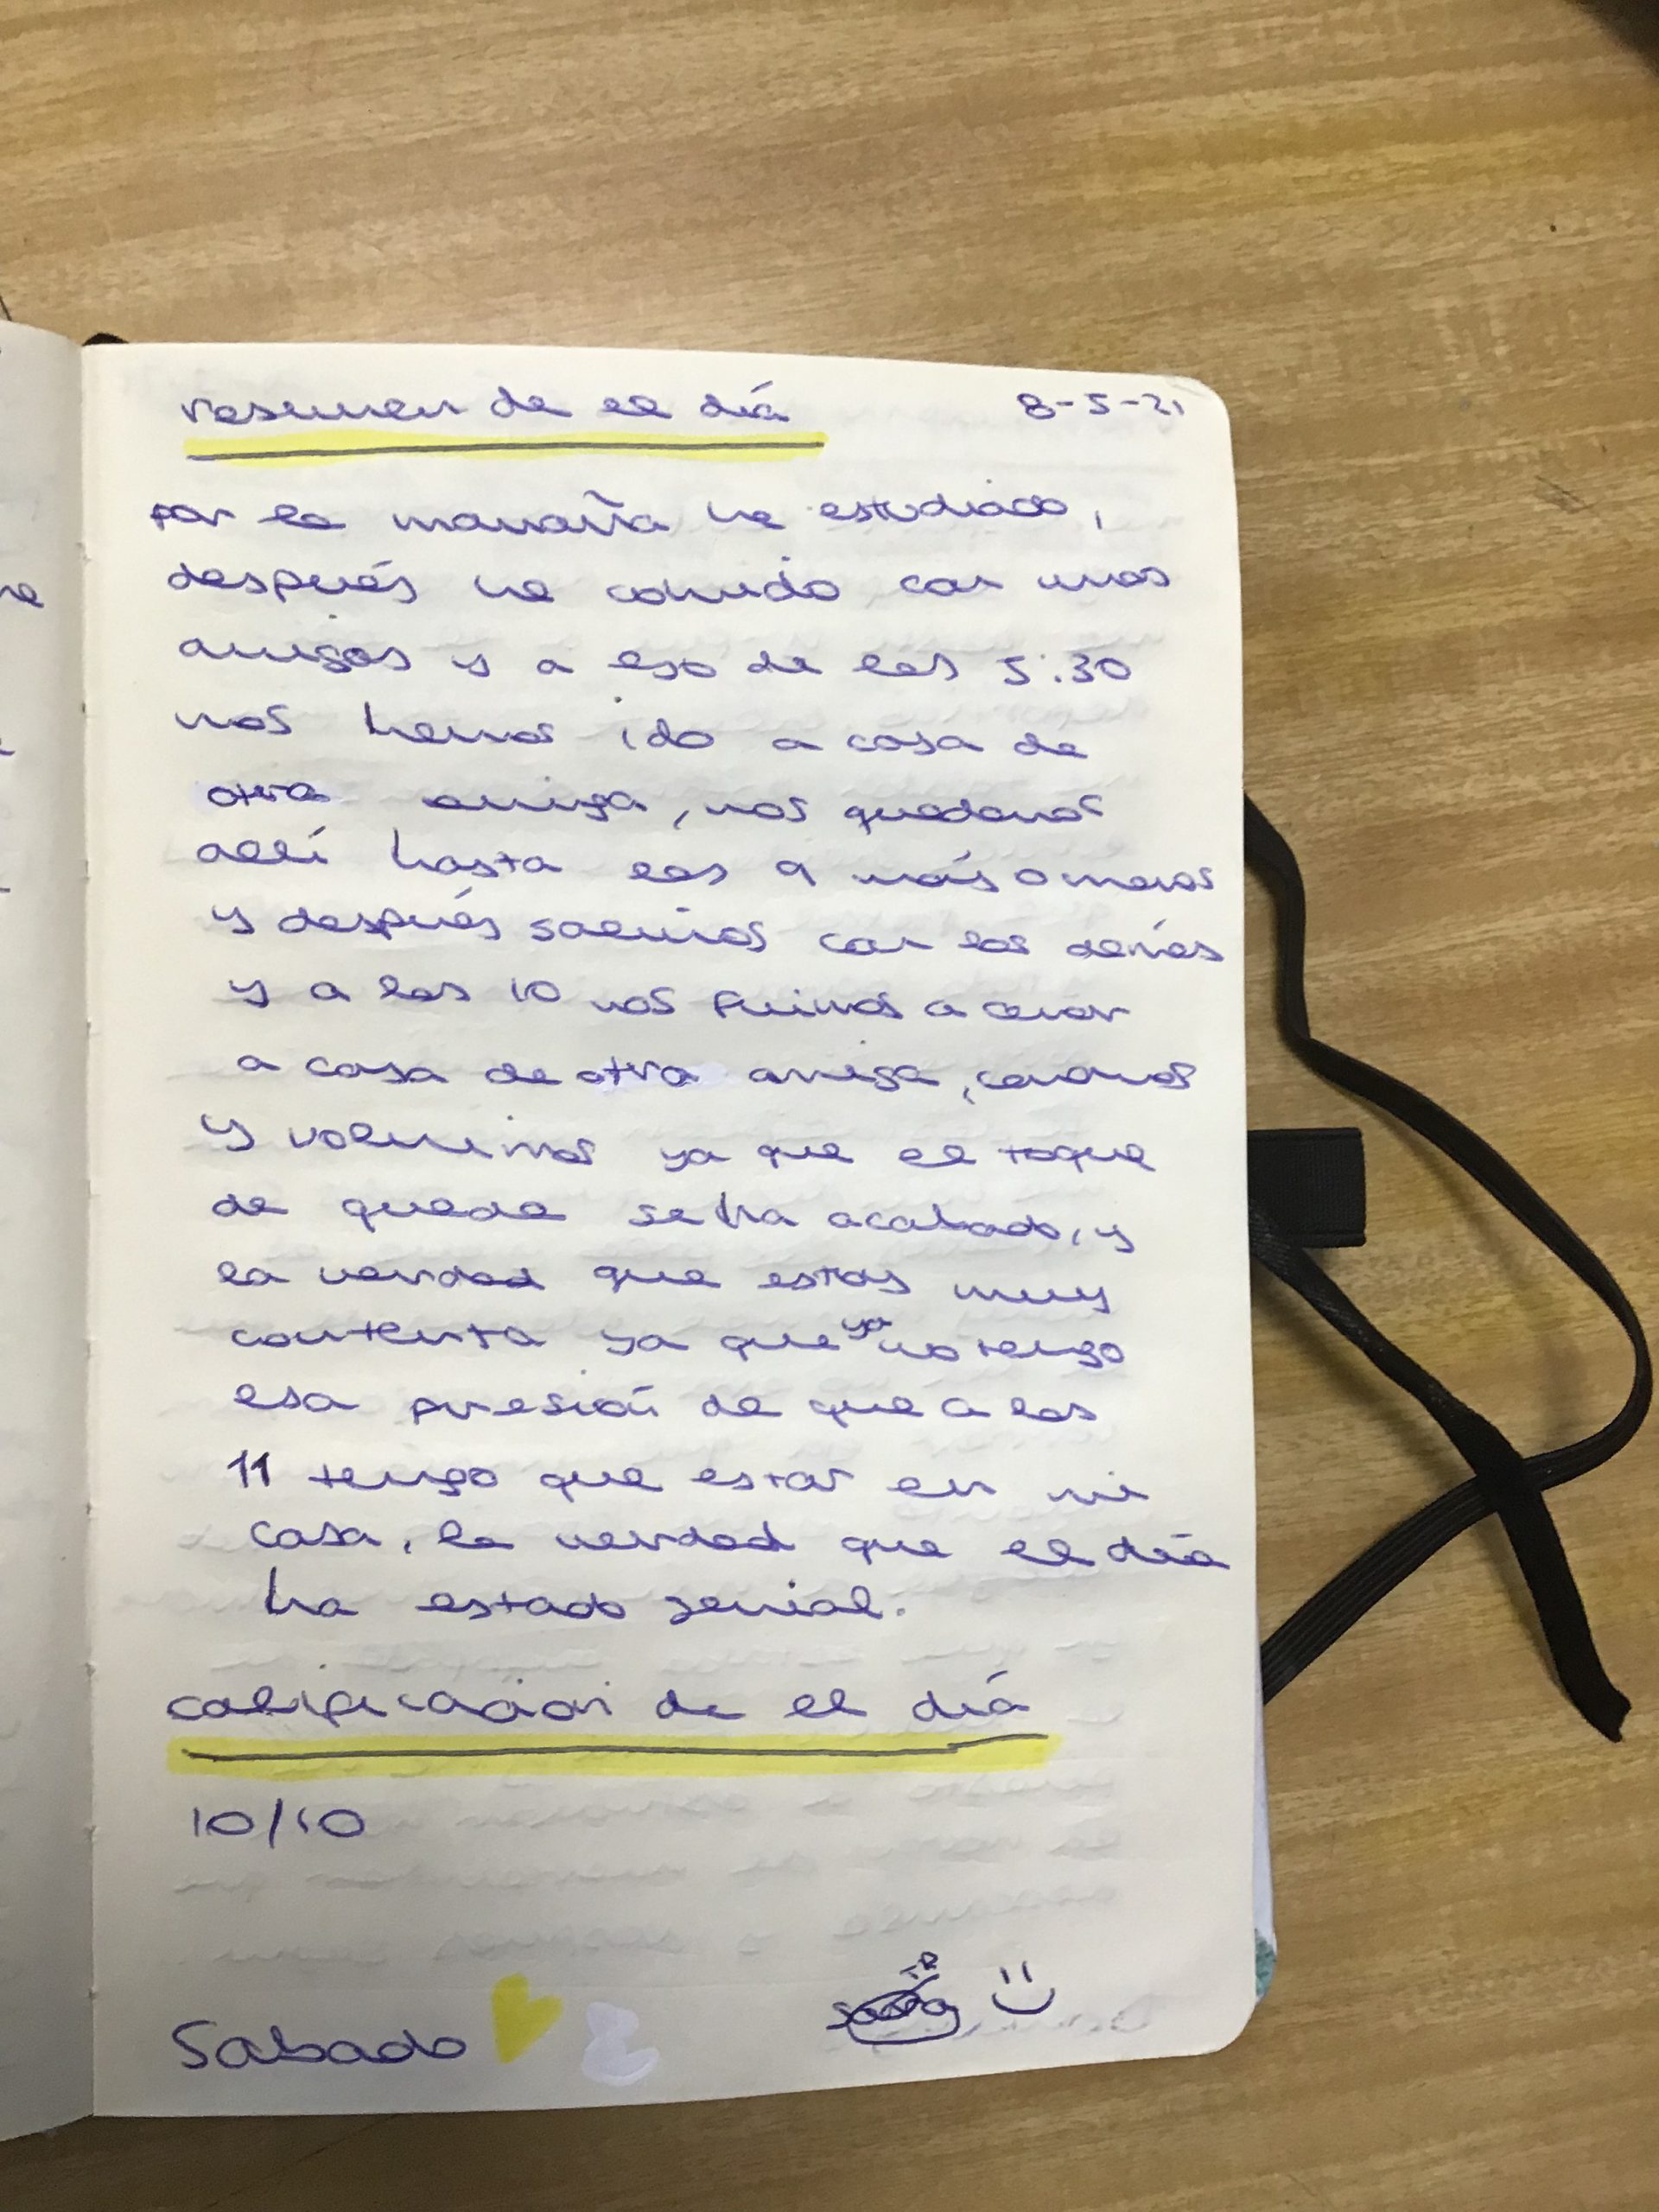 resumen de el día 8-5-21
por la mañana he estudiado,
después he comido con unas
amigas y a eso de las 5:30
nos hemos ido a casa de
otra amiga, nos quedamos
allí hasta las 9 más o menos
y después salimos con los demás
y a las 10 nos fuimos a cenar
a casa de otra amiga, cenamos
y volvimos ya que el toque
de queda se ha acabado, y
la verdad que estoy muy
contenta ya que ya no tengo
esa presión de que a las
11 tengo que estar en mi
casa, la verdad que el día
ha estado genial.
calificación de el día
10/10
Sabado